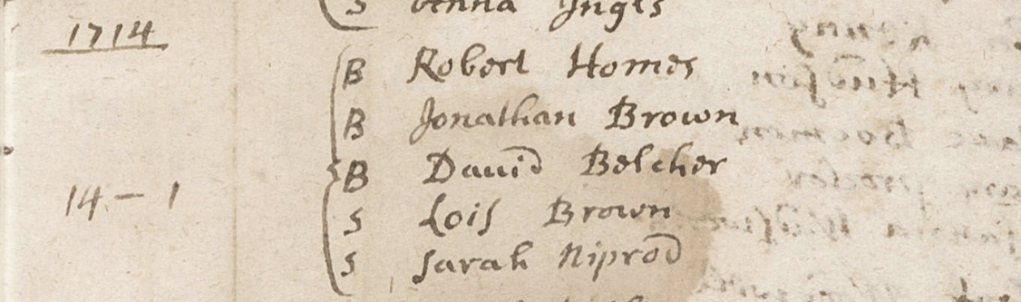 S Anna Ingls
1714
B Robert Homes
B Jonathan Brown
B Dauid Belcher
14 - 1
S Lois Brown
S Sarah Niprod